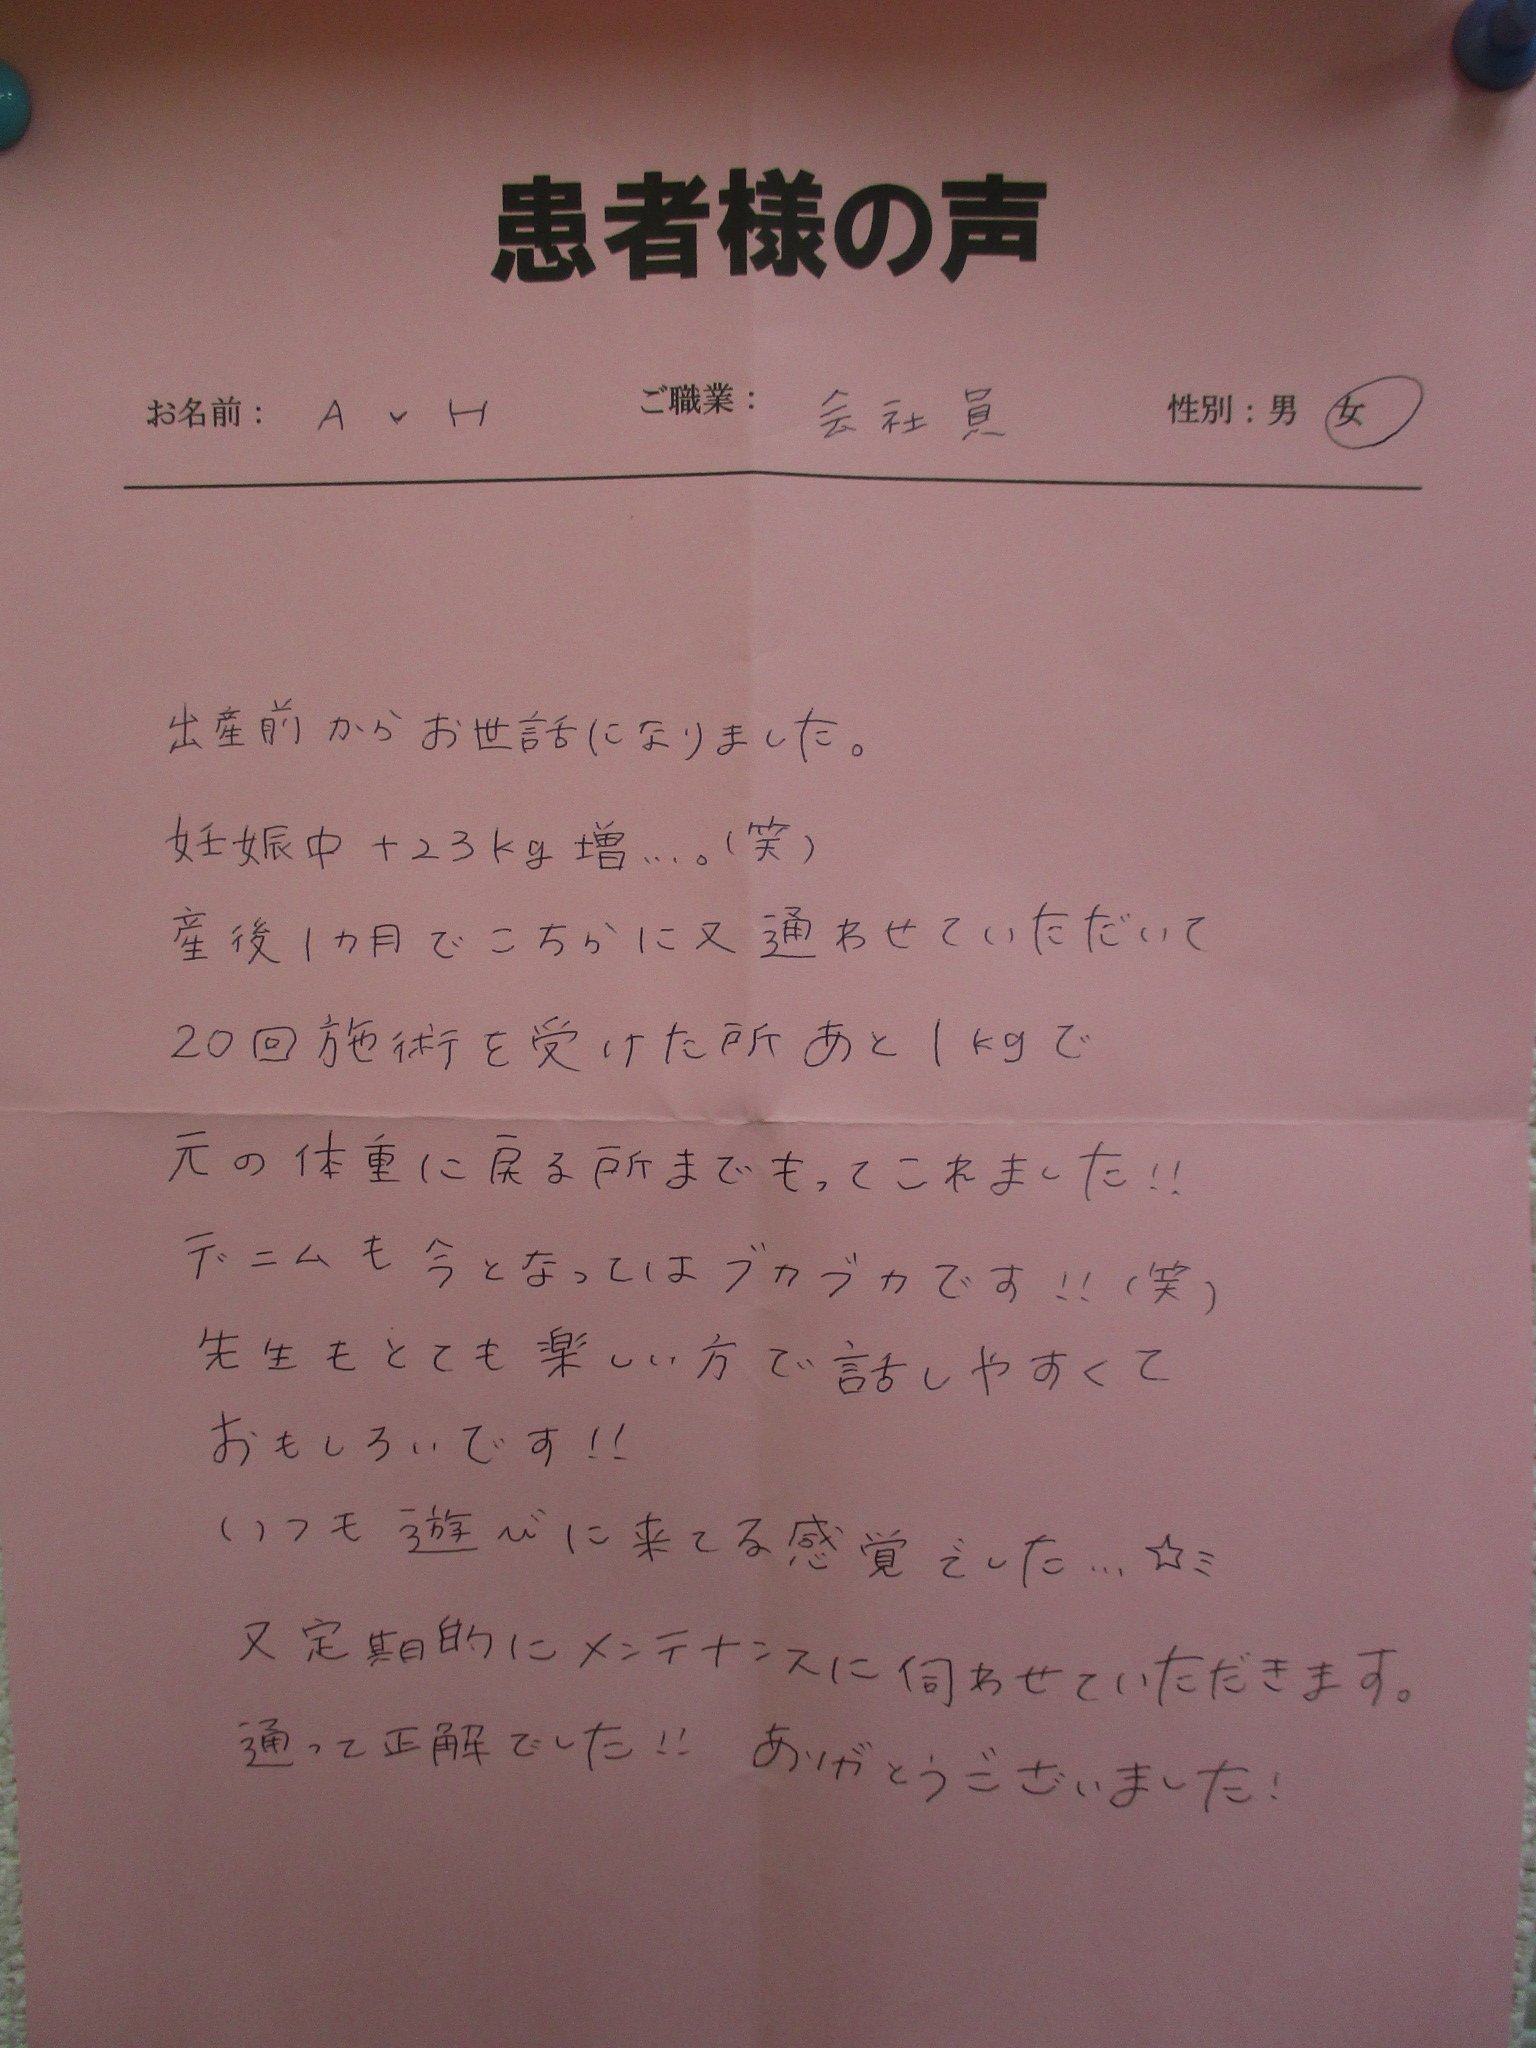 患者様の声
お名前： A、H ご職業： 会社員 性別：男 女
出産前からお世話になりました。
妊娠中+23kg増…。(笑)
産後1カ月でこちらに又通わせていただいて
20回施術を受けた所あと1kgで
元の体重に戻る所までもってこれました!!
デニムも今となってはブカブカです!!(笑)
先生もとても楽しい方で話しやすくて
おもしろいです!!
いつも遊びに来てる感覚でした…☆ミ
又定期的にメンテナンスに伺わせていただきます。
通って正解でした!! ありがとうございました!